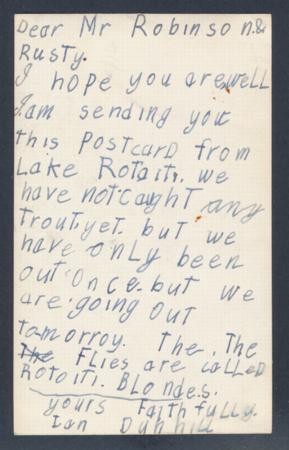 Dear Mr Robinson &
Rusty.
I hope you are well
I am sending you
this Postcard from
Lake Rotoiti. we
have not caught any
trout yet. but we
have only been
out once. but we
are going out
tomorroy. The. The
The Flies are called
Rotoiti. Blondes.
yours Faithfully.
Ian Dunhill